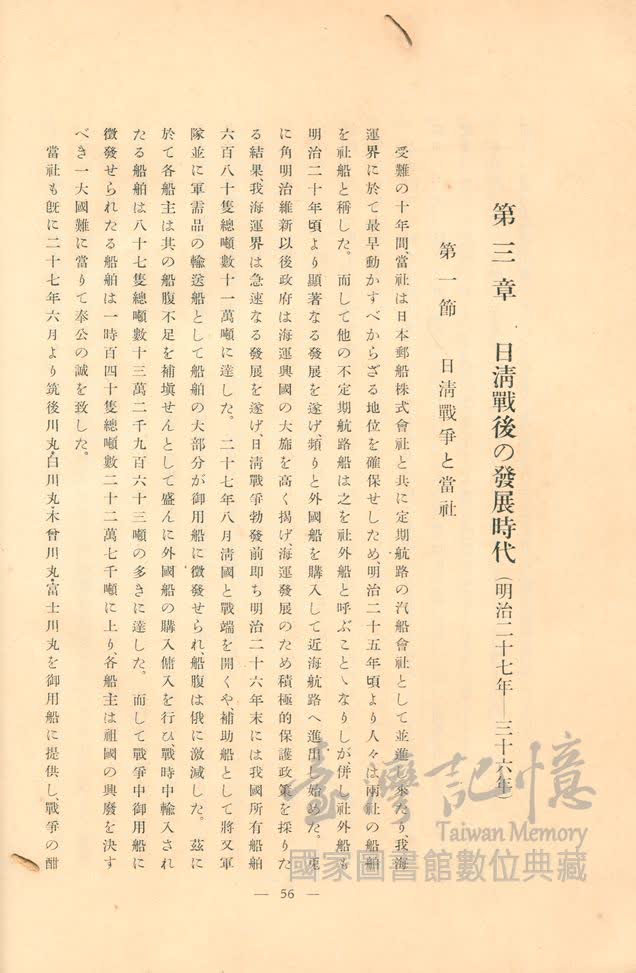 第三章　日淸戰後の發展時代（明治二十七年—三十六年）
第一節　日淸戰爭と當社
受難の十年間、當社は日本郵船株式會社と共に定期航路の汽船會社として並進し來たり、我海
運界に於て最早動かすべからざる地位を確保せしため、明治二十五年頃より人々は兩社の船舶
を社船と稱した。而して他の不定期航路船は之を社外船と呼ぶことゝなりしが、併し社外船も
明治二十年頃より顯著なる發展を遂げ、頻りと外國船を購入して近海航路へ進出し始めた。兎
に角明治維新以後政府は海運興國の大旆を高く揭げ、海運發展のため積極的保護政策を採りた
る結果、我海運界は急速なる發展を遂げ、日淸戰爭勃發前卽ち明治二十六年末には我國所有船舶
六百八十隻總噸數十一萬噸に達した。二十七年八月淸國と戰端を開くや、補助船として將又軍
隊並に軍需品の輸送船として船舶の大部分が御用船に徵發せられ、船腹は俄に激減した。茲に
於て各船主は其の船腹不足を補塡せんとして盛んに外國船の購入傭入を行ひ、戰時中輸入され
たる船舶は八十七隻總噸數十三萬二千九百六十三噸の多きに達した。而して戰爭中御用船に
徵發せられたる船舶は一時百四十隻總噸數二十二萬七千噸に上り、各船主は祖國の興廢を決す
べき一大國難に當りて奉公の誠を致した。
當社も旣に二十七年六月より筑後川丸・白川丸・木曾川丸・富士川丸を御用船に提供し、戰爭の酣
— 56 —
臺灣記憶
Taiwan Memory
國家圖書館數位典藏